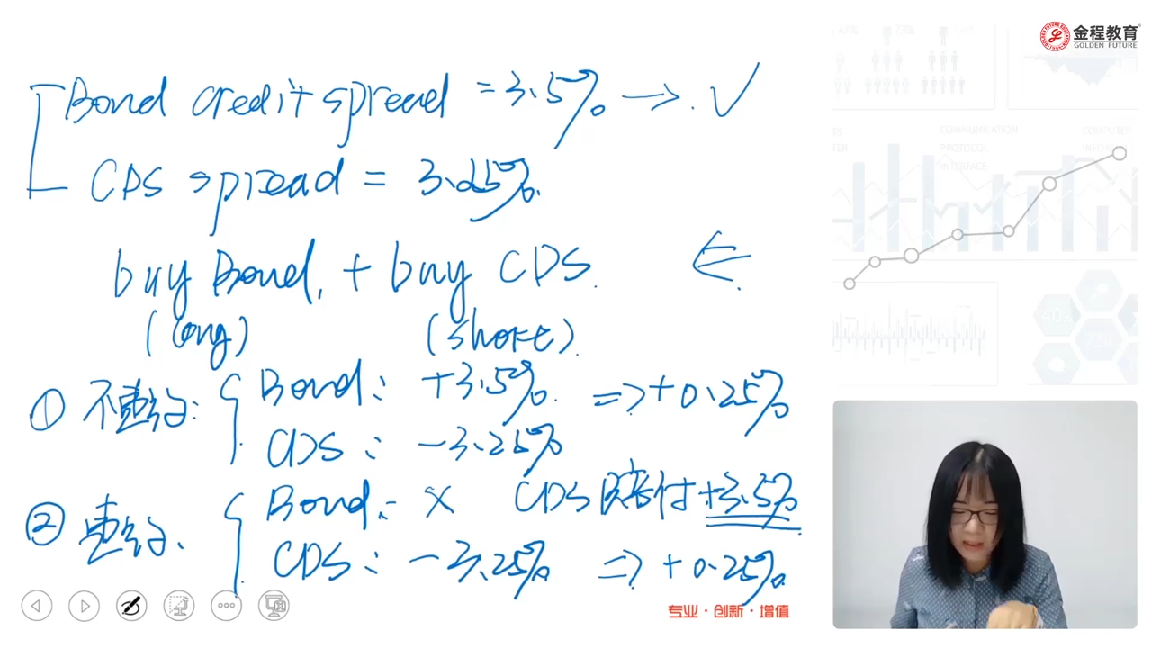 金程教育
GOLDEN FUTURE
Bond credit spread = 3.5% → . ✓
CDS spread = 3.25%.
buy Bond. + buy CDS. ⇐
(long) (short).
① 不违约: { Bond: +3.5%. ⇒ +0.25%
CDS: -3.25%
② 违约、 { Bond: × CDS 赔付 +3.5%
CDS: -3.25% ⇒ +0.25%
专业·创新·增值
COMMUNICATION
PROTOCOL
INTERFACE